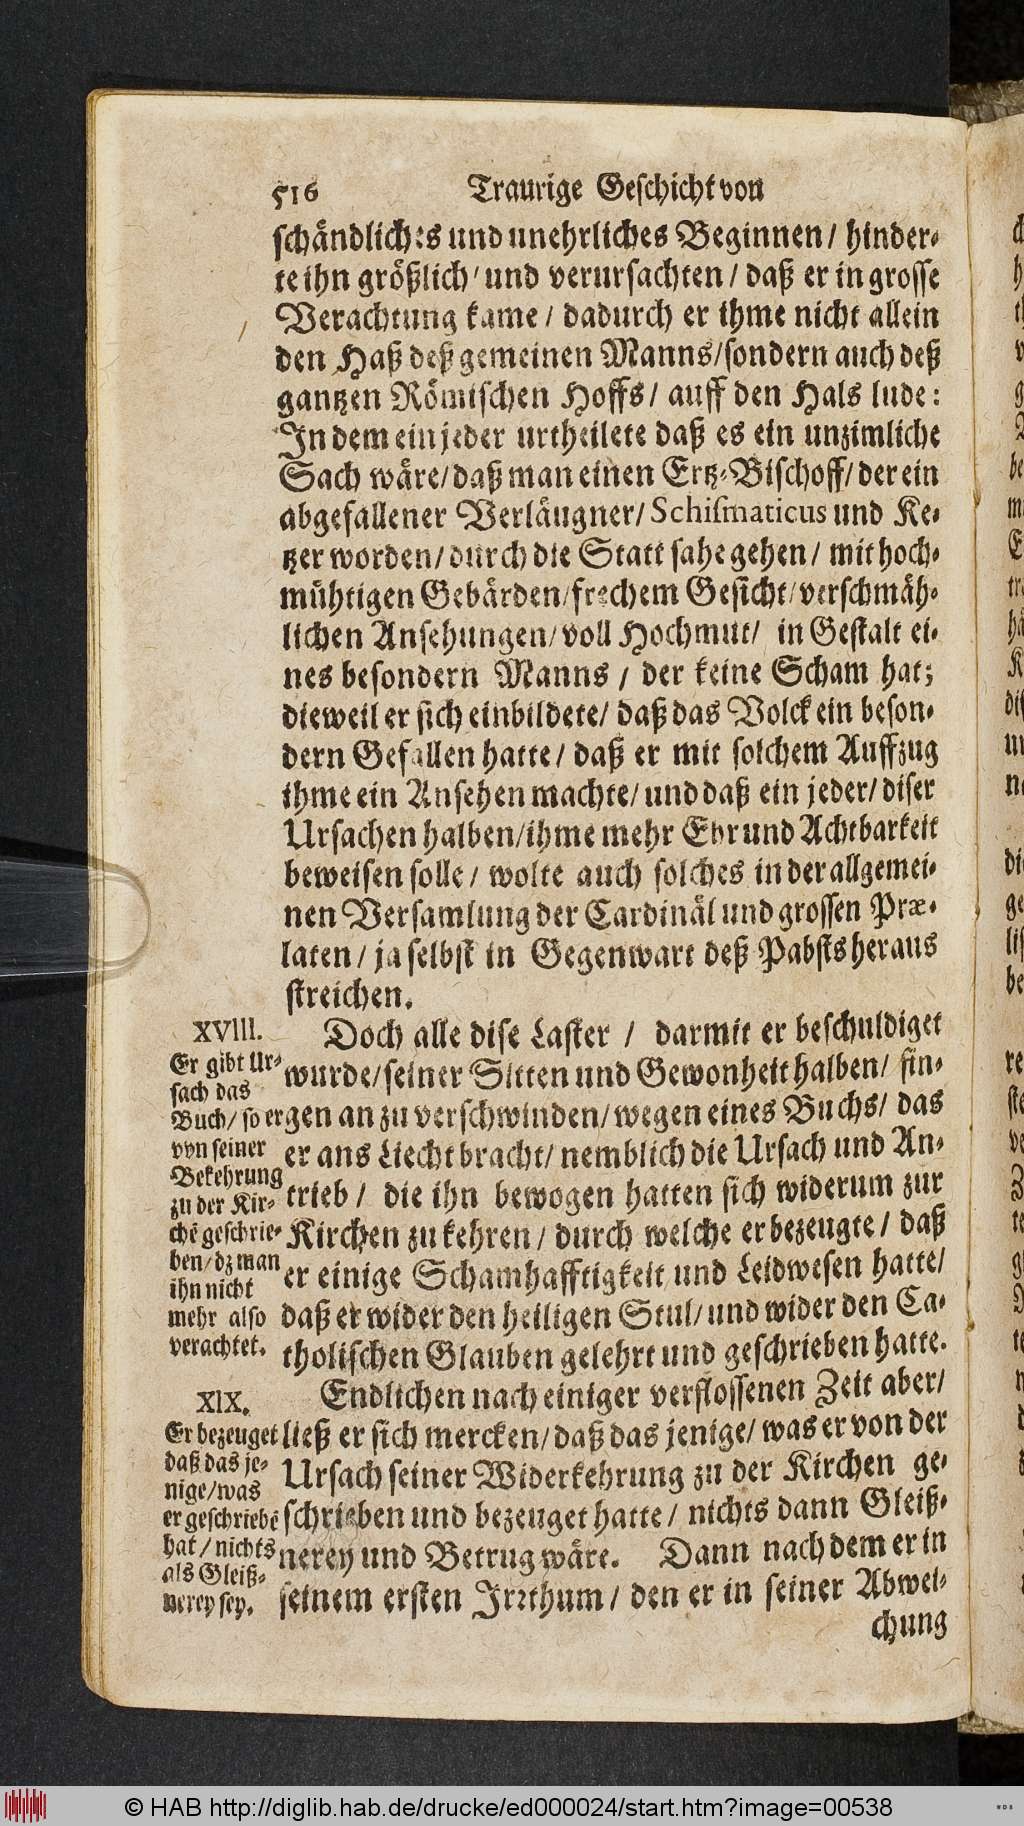 516 Traurige Geschicht von
schändliches und unehrliches Beginnen / hinder-
te ihn größlich / und verursachten / daß er in grosse
Verachtung kame / dadurch er ihme nicht allein
den Haß deß gemeinen Manns / sondern auch deß
gantzen Römischen Hoffs / auff den Hals lude:
In dem ein jeder urtheilete daß es ein unzimliche
Sach wäre / daß man einen Ertz-Bischoff / der ein
abgefallener Verläugner / Schismaticus und Ke-
tzer worden / durch die Statt sahe gehen / mit hoch-
mühtigen Gebärden / frechem Gesicht / verschmäh-
lichen Ansehungen / voll Hochmut / in Gestalt ei-
nes besondern Manns / der keine Scham hat;
dieweil er sich einbildete / daß das Volck ein beson-
dern Gefallen hatte / daß er mit solchem Auffzug
ihme ein Ansehen machte / und daß ein jeder / diser
Ursachen halben / ihme mehr Ehr und Achtbarkeit
beweisen solle / wolte auch solches in der allgemei-
nen Versamlung der Cardinäl und grossen Præ-
laten / ja selbst in Gegenwart deß Pabsts heraus
streichen.
XVIII.
Er gibt Ur-
sach das
Buch / so er
von seiner
Bekehrung
zu der Kir-
chē geschrie-
ben / dz man
ihn nicht
mehr also
verachtet.
Doch alle dise Laster / darmit er beschuldiget
wurde / seiner Sitten und Gewonheit halben / fin-
gen an zu verschwinden / wegen eines Buchs / das
er ans Liecht bracht / nemblich die Ursach und An-
trieb / die ihn bewogen hatten sich widerum zur
Kirchen zu kehren / durch welche er bezeugte / daß
er einige Schamhafftigkeit und Leidwesen hatte /
daß er wider den heiligen Stul / und wider den Ca-
tholischen Glauben gelehrt und geschrieben hatte.
XIX.
Er bezeuget
daß das je-
nige / was
er geschriebē
hat / nichts
als Gleiß-
nerey sey.
Endlichen nach einiger verflossenen Zeit aber /
ließ er sich mercken / daß das jenige / was er von der
Ursach seiner Widerkehrung zu der Kirchen ge-
schrieben und bezeuget hatte / nichts dann Gleiß-
nerey und Betrug wäre. Dann nach dem er in
seinem ersten Irrthum / den er in seiner Abwei-
chung
© HAB http://diglib.hab.de/drucke/ed000024/start.htm?image=00538